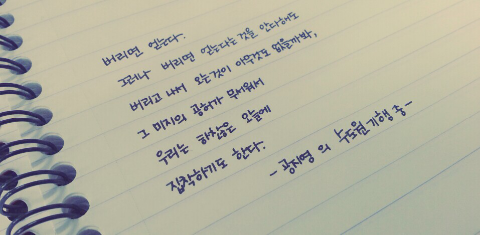 버리면 얻는다.
그러나 버리면 얻는다는 것을 안다해도
버리고 나서 오는것이 아무것도 없을까봐,
그 미지의 공허가 무서워서
우리는 하찮은 오늘에
집착하기도 한다.
- 공지영 의 수도원 기행 중 -